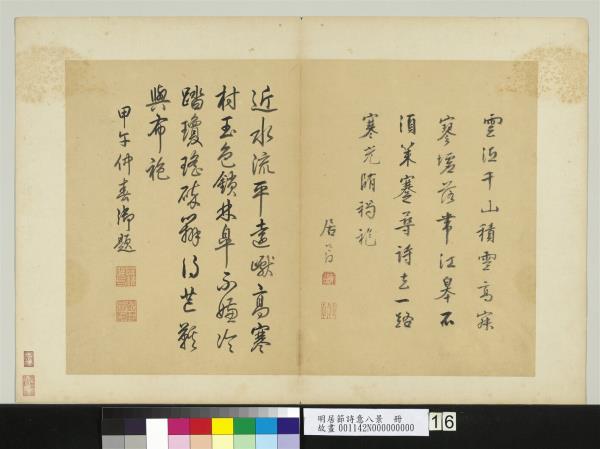 千山積雪高寂
寥墟落江皋不
須策蹇尋詩去一路
寒光袍
居節
近水流平遠巘高寒
村玉色鎖林皋不嫌冷
踏瓊瑤碎辦得芒鞵
與布袍
甲午仲春御題
明居節詩意八景 冊
故畫 001142N000000000
16